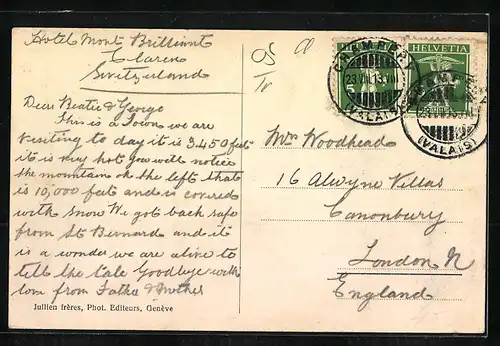 Hotel Mont Brilliant
Clarens
Switzerland
Dear Beatie & George
This is a Town we are
visiting to day it is 3.450 feet
it is very hot you will notice
the mountain on the left that
is 10,000 feet and is covered
with snow We got back safe
from St Bernard and it
is a wonder we are alive to
tell the tale Goodbye with
love from Father & Mother
Jullien frères, Phot. Editeurs, Genève
CHAMPEX
23.VII.13.VIII
(VALAIS)
HELVETIA
(VALAIS)
Mrs Woodhead
16 Alwyne Villas
Canonbury
London N
England